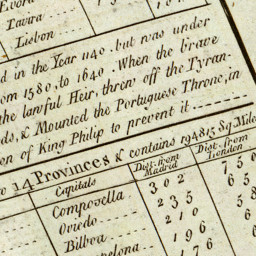 Evora
Tavira
Lisbon
d in the Year 1140. but was under
om 1580, to 1640. When the brave
the lawful Heir, threw off the Tyran-
ds, & Mounted the Portuguese Throne, in
on of King Philip to prevent it.
14 Provinces & contains 194815 Sq. Miles
Capitals Dist. from Madrid Dist. from London
Compostella 302 750
Oviedo 235 65
Bilboa 210 58
196 6
176